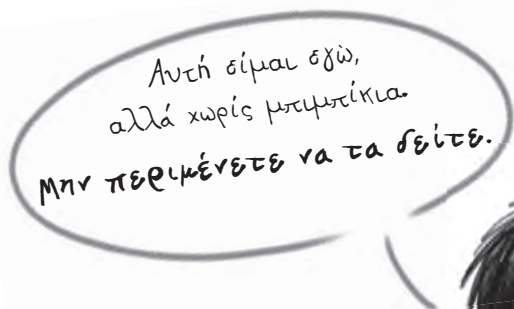 Αυτή είμαι εγώ,
αλλά χωρίς μπιμπίκια.
Μην περιμένετε να τα δείτε.